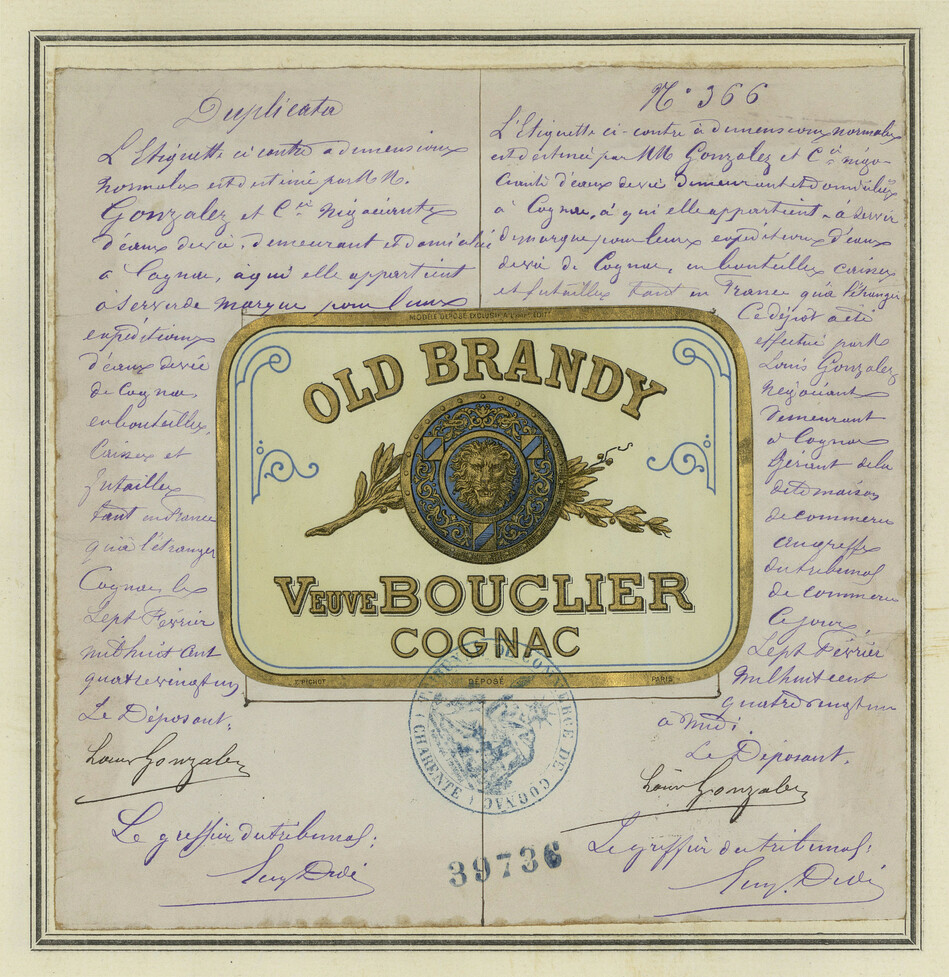 Duplicata
L'Etiquette ci contre a dimensions
normales est destinée par MM.
Gonzalez et Cie négociants
d'eaux de vie, demeurant et domiciliés
à Cognac, à qui elle appartient
à servir de marque pour leurs
expéditions
d'eaux de vie
de Cognac
en bouteilles,
Caisses et
futailles
tant en France
qu'à l'étranger
Cognac, les
Sept Février
mil huit cent
quatre vingt un
Le Déposant:
Louis Gonzalez
Le greffier du tribunal:
N° 366
L'Etiquette ci-contre à dimensions normales
est destinée par MM Gonzalez et Cie négo-
ciants d'eaux de vie demeurant et domiciliés
à Cognac, à qui elle appartient - à servir
de marque pour leurs expéditions d'eaux
de vie de Cognac, en bouteilles caisses
et futailles tant en France qu'à l'étranger
Ce dépôt a été
effectué par M
Louis Gonzalez
Négociant
demeurant
à Cognac
Gérant de la
dite maison
de commerce
au greffe
du tribunal
de commerce
Ce jour
Sept Février
Mil huit cent
quatre vingt un
à Midi.
Le Déposant,
Louis Gonzalez
Le greffier du tribunal:
MODÈLE DÉPOSÉ
OLD BRANDY
VEUVE BOUCLIER
COGNAC
PICHOT DÉPOSÉ PARIS
TRIBUNAL DE COMMERCE DE COGNAC (CHARENTE)
39736